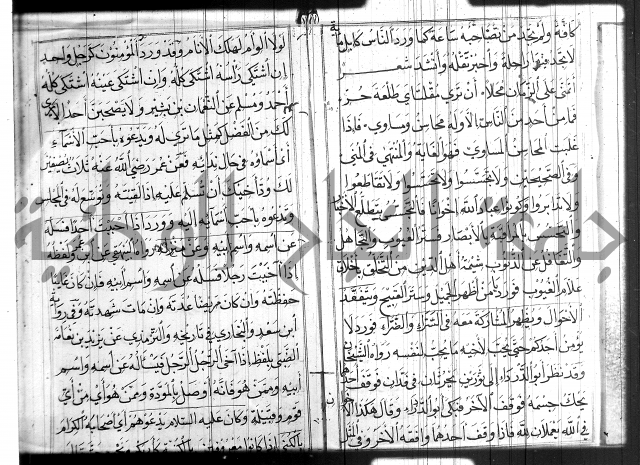 كافة ولم تجد من تصاحبه ساعة كما ورد الناس كابل مائة
لا تجد فيها راحلة واخبر تقله وانشد شعر
اتمنى على الزمان محالا ان ترى مقلتاي طلعة حر
فما من احد من الناس الا وله محاسن ومساوي فاذا
غلبت المحاسن المساوي فهو الغاية والمنتهى في المنى
وفي الصحيحين ولا تجسسوا ولا تحسسوا ولا تقاطعوا
ولا تدابروا وكونوا عباد الله اخوانا فالتجسس بتطلع الاخبار
والتحسس المراقبة بالابصار فستر العيوب والتجاهل
والتغافل عن الذنوب شيمة اهل الدين من التخلق باخلاق
علام الغيوب فورد يا من اظهر الجميل وستر القبيح ويتفقد
الاحوال ويظهر المشاركة معه في السراء والضراء فورد لا
يؤمن احدكم حتى يحب لاخيه ما يحب لنفسه رواه الشيخان
وقد نظر ابو الدرداء الى ثورين يحرثان في فدان فوقف احدهما
يحك جسمه فوقف الاخر فبكى ابو الدرداء وقال هكذا الاخوان
في الله يعملان لله فاذا وقف احدهما وافقه الاخر وفي المثل
لولا الوام لهلك الانام وقد ورد المؤمنون كرجل واحد
ان اشتكى راسه اشتكى كله وان اشتكى عينه اشتكى كله
احمد ومسلم عن النعمان بن بشير ولا يصحبن احدا الا يرى
لك من الفضل كمثل ما ترى له ويدعوه باحب الاسماء
اي اسماؤه في حال ندائه فعن عمر رضي الله عنه ثلاث يصفين
لك ود اخيك ان تسلم عليه اذا لقيته وتوسع له في المجلس
وتدعوه باحب اسمائه اليه وورد اذا احببت احدا فسله
عن اسمه واسم ابيه وعن منزله رواه البيهقي عن ابن عمر ولفظه
اذا احببت رجلا فسله عن اسمه واسم ابيه فان كان غائبا
حفظته وان كان مريضا عدته وان مات شهدته وفي رواية
ابن سعد والبخاري في تاريخه والترمذي عن يزيد بن نعامة
الضبي بلفظ اذا اخى الرجل الرجل فليساله عن اسمه واسم
ابيه وممن هو فانه اوصل للمودة وممن هو اي من اي
قوم وقبيلة وكان عليه السلام يدعو هو اي اصحابه الكرام